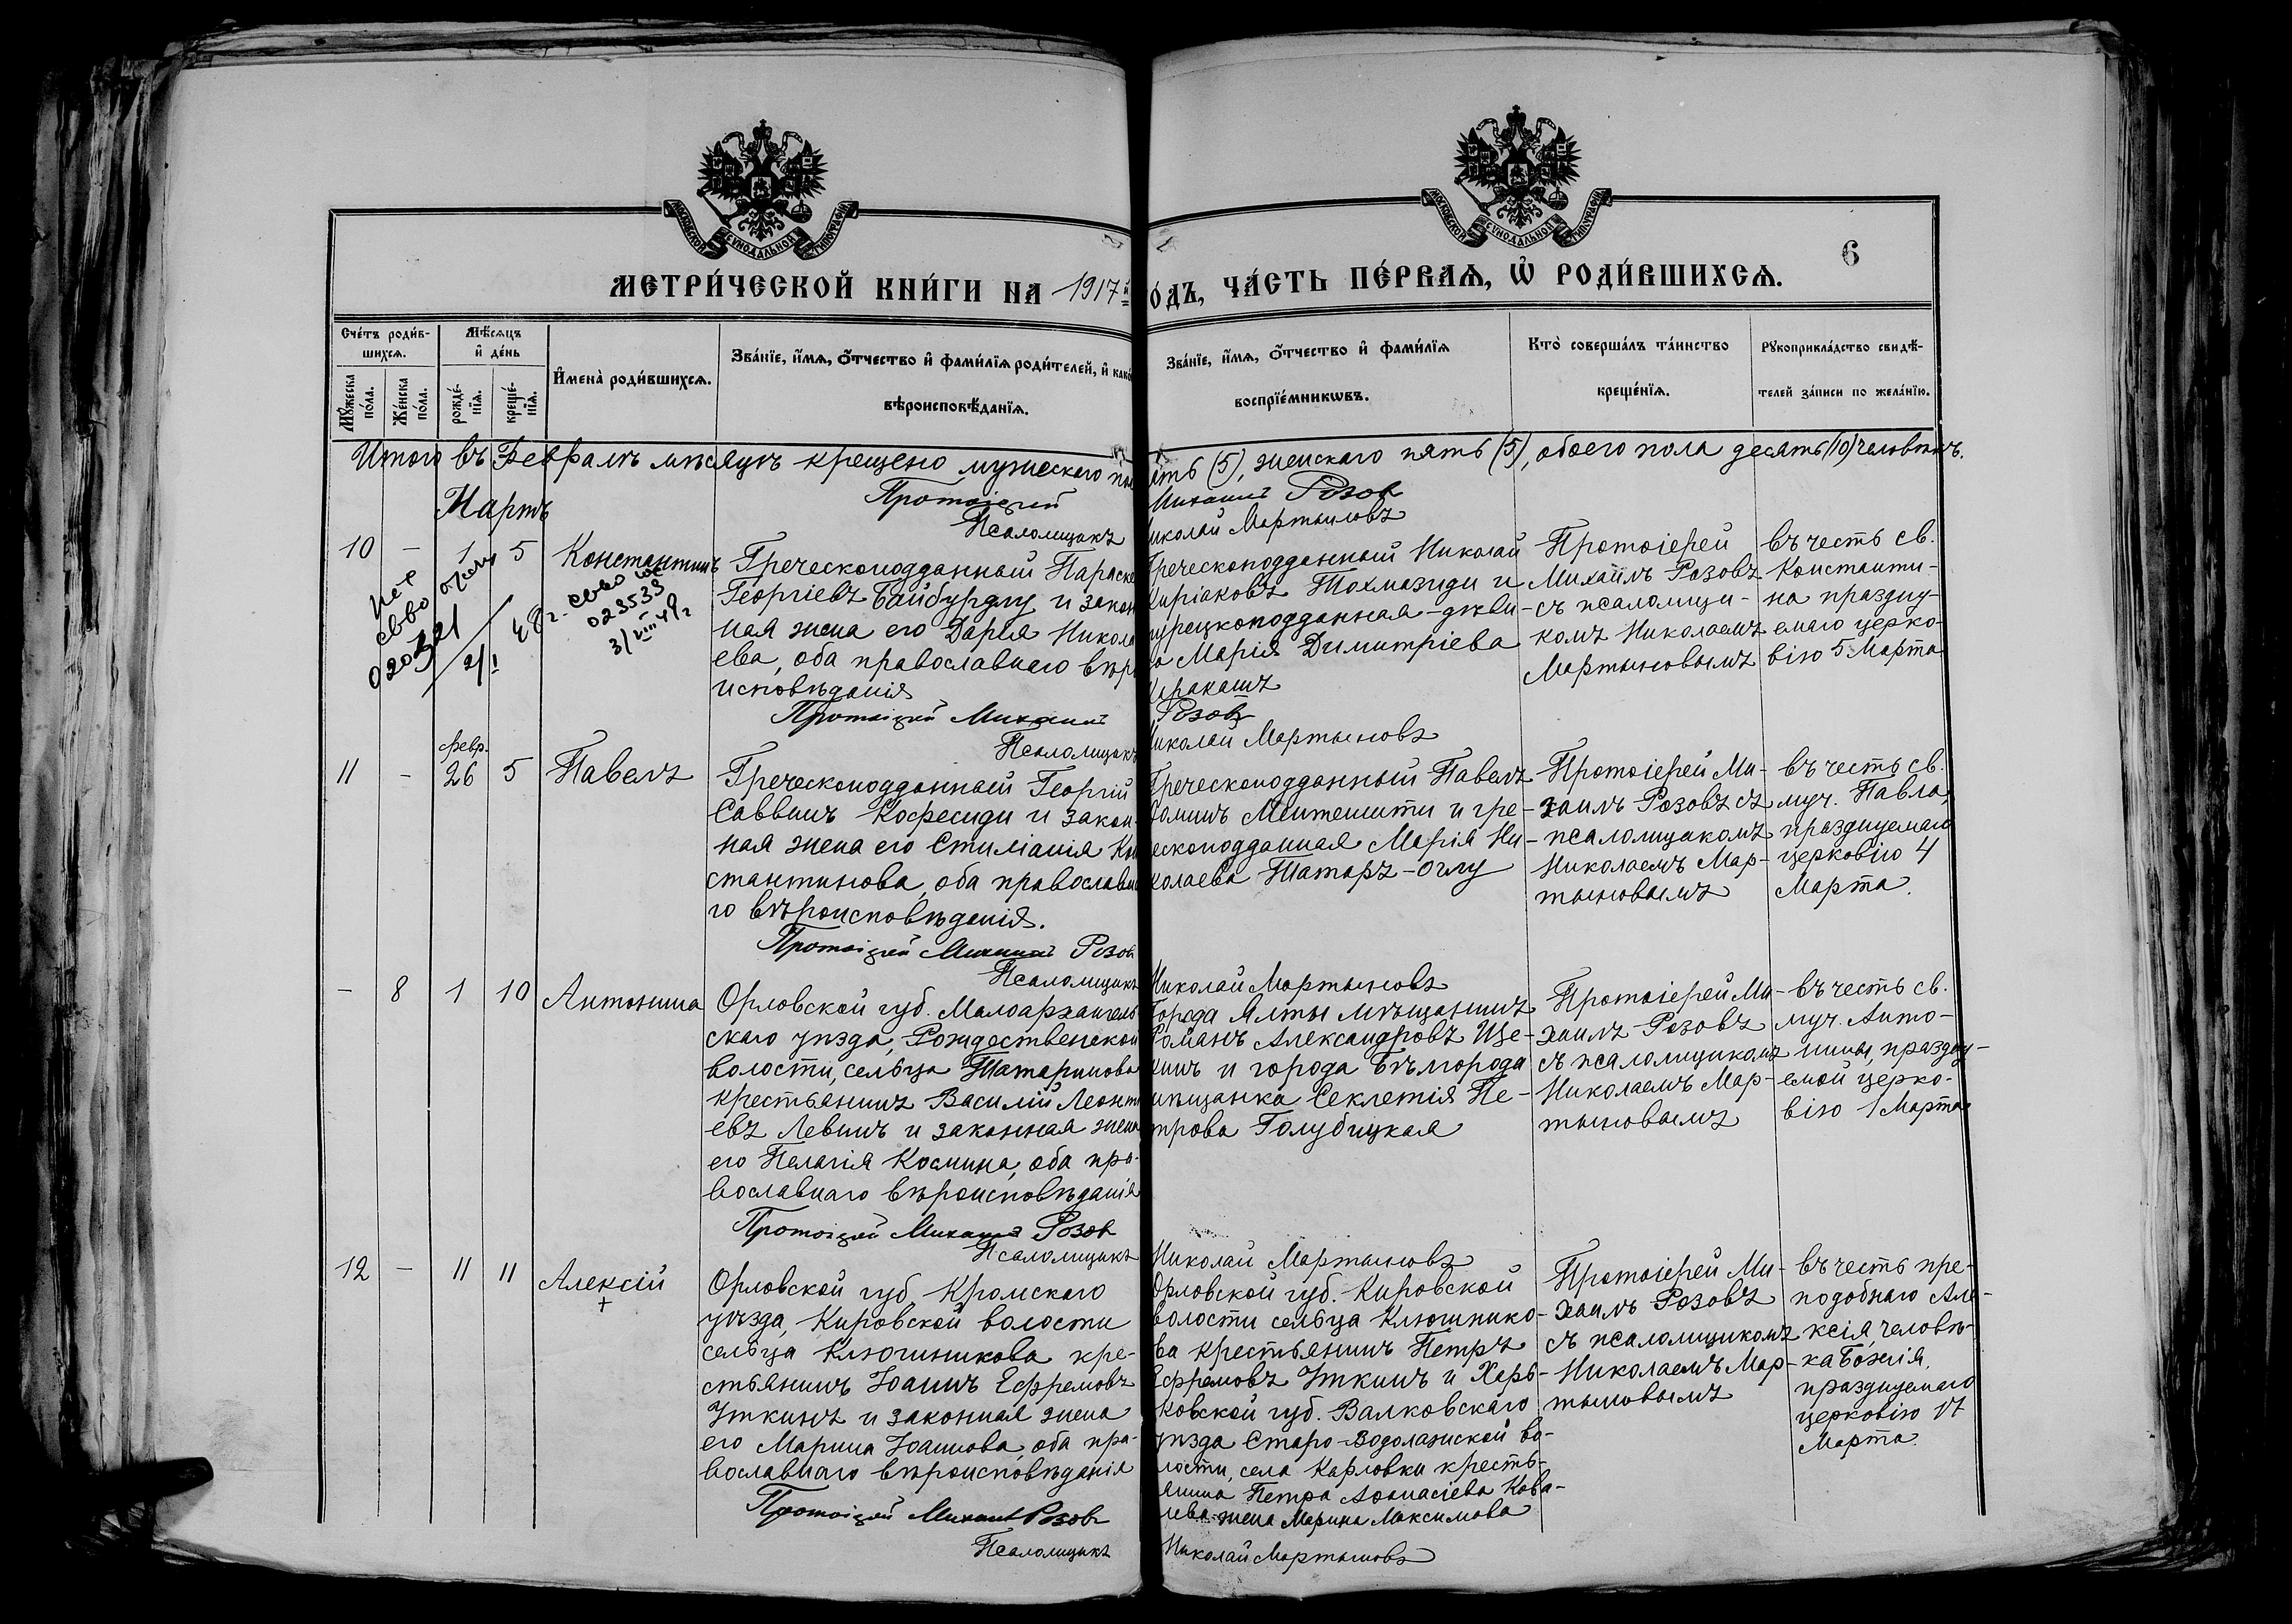 МОСКОВСКОЙ СѴНОДАЛЬНОЙ ТИПОГРАФІИ
МОСКОВСКОЙ СѴНОДАЛЬНОЙ ТИПОГРАФІИ
6
МЕТРИ́ЧЕСКОЙ КНИ́ГИ НА 1917й
О́ДЪ, ЧА́СТЬ ПЕ́РВАѦ, Ѡ҆ РОДИ́ВШИХСѦ.
Сче́тъ роди́в-
шихсѧ.
Мꙋ́жеска по́ла.
Же́нска по́ла.
Мѣ́сѧцъ
и҆ де́нь
рожде́-
нїѧ.
креще́-
нїѧ.
И҆мена̀ роди́вшихсѧ.
Зва́нїе, и҆́мѧ, ѻ҆́тчество и҆ фами́лїѧ роди́телей, и҆ како́
вѣроисповѣ́данїѧ.
Зва́нїе, и҆́мѧ, ѻ҆́тчество и҆ фами́лїѧ
воспрїе́мникѡвъ.
Кто̀ соверша́лъ та́инство
креще́нїѧ.
Рꙋкоприкла́дство свидѣ́-
телей за́писи по жела́нїю.
Итого въ Февралѣ мѣсяцѣ крещено мужескаго по
ять (5), женскаго пять (5), обоего пола десять (10) человѣкъ.
Протоіерей
Михаилъ Розов
Псаломщикъ
иколай Мартыновъ
Мартъ
10 - 1 5 Константинъ
020321
2/I
023533
3/VIII 49г
Греческоподданный Параске
Георгіевъ Байбурдлу и закон
ная жена его Дарья Никола
ева, оба православнаго вѣро
исповѣданія
Греческоподданный Николай
Киріаковъ Тохмазиди и
турецкоподданная-дѣви-
а Марія Димитріева
Каракашъ
Протоіерей
Михаилъ Розовъ
съ псаломщи-
комъ Николаемъ
Мартыновымъ
въ честь св.
Константи-
на праздну-
емаго церко-
вію 5 Марта
Протоіерей Михаилъ
Розовъ
Псаломщикъ
иколай Мартыновъ
11 - февр. 26 5 Павелъ
Греческоподданный Георгій
Саввинъ Кофесиди и закон-
ная жена его Стиліанія Кон
стантинова, оба православна
го вѣроисповѣданія.
Греческоподданный Павелъ
и гре-
ескоподданная Марія Ни-
колаева Татаръ-оглу
Протоіерей Ми-
хаилъ Розовъ съ
псаломщикомъ
Николаемъ Мар-
тыновымъ
въ честь св.
муч. Павла,
празднуемаго
церковію 4
Марта.
Протоіерей Михаилъ Розов
Псаломщикъ
Николай Мартыновъ
- 8 1 10 Антонина
Орловской губ. Малоархангель
скаго уѣзда, Рождественской
волости, сельца Татаринова
крестьянинъ Василій Леонті
евъ Левинъ и законная жена
его Пелагія Космина, оба пра-
вославнаго вѣроисповѣданія
Города Ялты мѣщанинъ
Романъ Александровъ Ще-
кинъ и города Бѣлгорода
мѣщанка Секлетія Пе-
трова Голубицкая
Протоіерей Ми-
хаилъ Розовъ
съ псаломщикомъ
Николаемъ Мар-
тыновымъ
въ честь св.
муч. Анто-
нины, праздну-
емой церко-
вію 1 Марта
Протоіерей Михаилъ Розов
Псаломщикъ
Николай Мартыновъ
12 - 11 11 Алексій
+
Орловской губ. Кромскаго
уѣзда, Кировской волости
сельца Ключникова кре-
стьянинъ Іоаннъ Ефремовъ
Уткинъ и законная жена
его Марина Іоаннова, оба пра-
вославнаго вѣроисповѣданія
Орловской губ. Кировской
волости сельца Ключнико-
ва крестьянинъ Петръ
Ефремовъ Уткинъ и Харь-
ковской губ. Валковскаго
уѣзда Старо-Водолажской во-
лости, села Карловки кресть-
янина Петра Аѳанасіева Кова-
лева жена Марина Максимова
Протоіерей Ми-
хаилъ Розовъ
съ псаломщикомъ
Николаемъ Мар-
тыновымъ
въ честь пре-
подобнаго Але-
ксія, человѣ-
ка Божія,
празднуемаго
церковію 17
Марта.
Протоіерей Михаилъ Розовъ
Псаломщикъ
Николай Мартыновъ